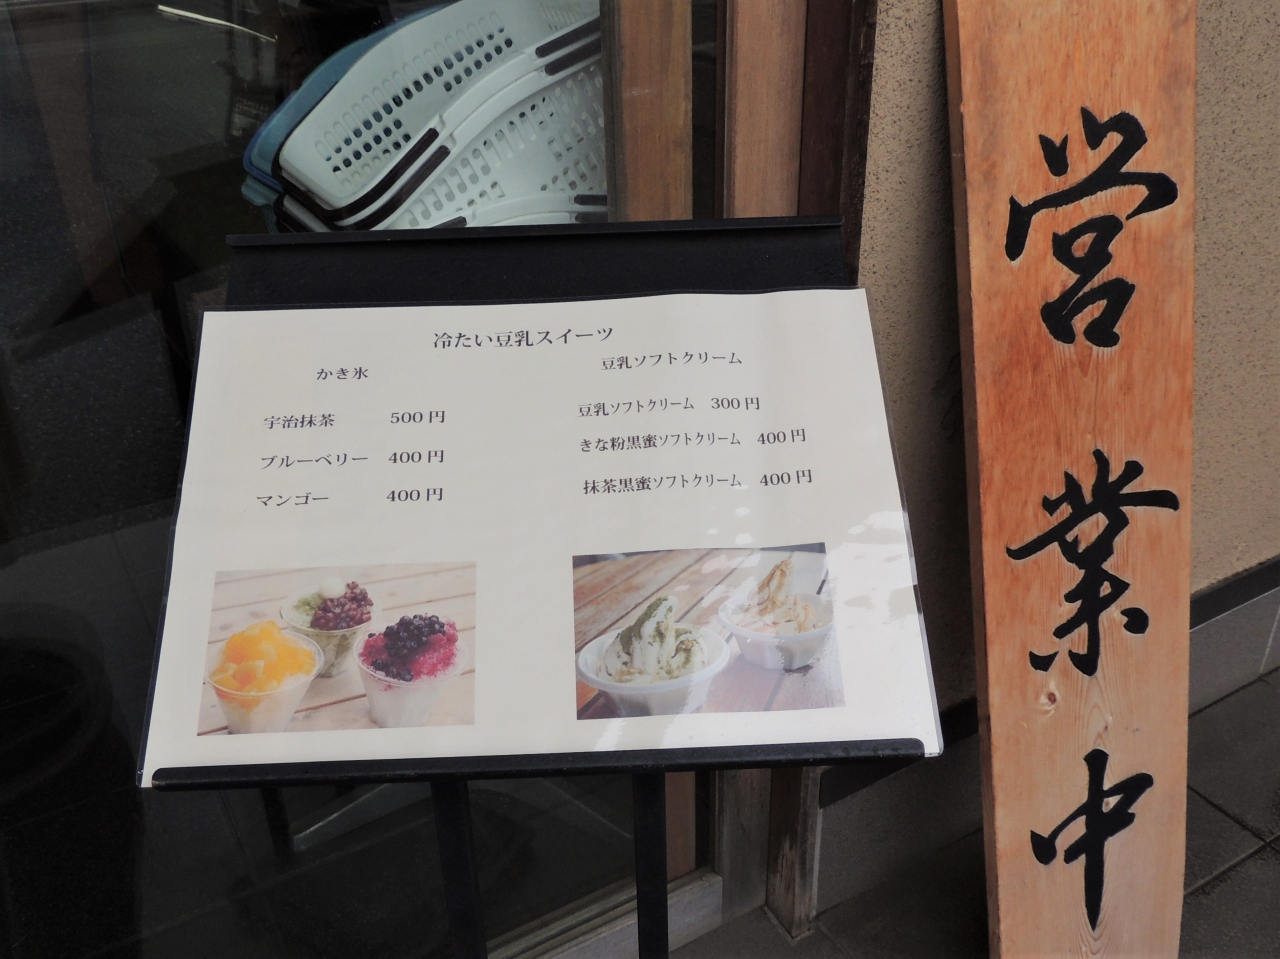 冷たい豆乳スイーツ
かき氷
宇治抹茶 500円
ブルーベリー 400円
マンゴー 400円
豆乳ソフトクリーム
豆乳ソフトクリーム 300円
きな粉黒蜜ソフトクリーム 400円
抹茶黒蜜ソフトクリーム 400円
営業中